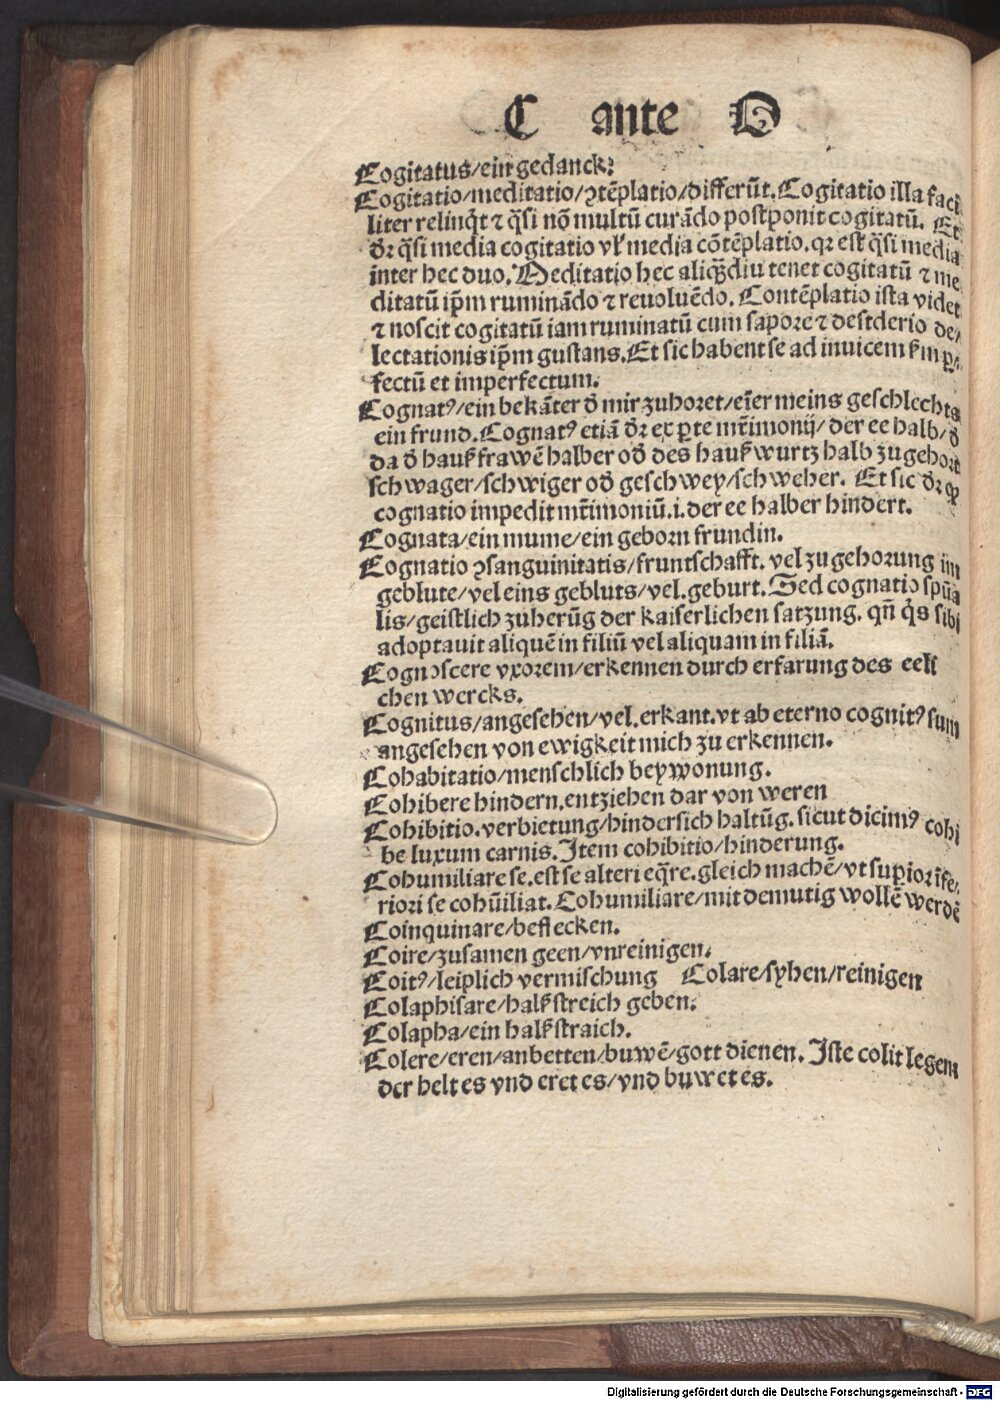 C ante O
Cogitatus/ein gedanck:
Cogitatio/meditatio/ꝯtẽplatio/differũt. Cogitatio illa faci
liter relinq̃t ⁊ q̃si nõ multũ curãdo postponit cogitatũ. Et
dr̃ q̃si media cogitatio vl' media cõtẽplatio. qꝛ est q̃si media
inter hec duo. Meditatio hec aliq̃diu tenet cogitatũ ⁊ me
ditatũ ip̃m ruminãdo ⁊ reuoluẽdo. Contẽplatio ista videt
⁊ noscit cogitatũ iam ruminatũ cum sapore ⁊ desiderio de/
lectationis ip̃m gustans. Et sic habent se ad inuicem ẜm ꝑ/
fectũ et imperfectum.
Cognatꝰ/ein bekãter d̃ mir zuhoret/eĩer meins geschlechts
ein frund. Cognatꝰ etiã dr̃ ex ꝑte mr̃imonij/der ee halb/d̃
da d̃ hauß frawẽ halber od̃ des hauß wurtz halb zugehort
schwager/schwiger od̃ geschwey/schweher. Et sic dr̃ ꝙ
cognatio impedit mr̃imoniũ.i.der ee halber hindert.
Cognata/ein mume/ein geborn frundin.
Cognatio ꝯsanguinitatis/fruntschafft. vel zugehorung im
geblute/vel eins gebluts/vel.geburt. Sed cognatio spũa
lis/geistlich zuherũg der kaiserlichen satzung. qñ q̃s sibi
adoptauit aliquẽ in filiũ vel aliquam in filiã.
Cognoscere vxorem/erkennen durch erfarung des eeli
chen wercks.
Cognitus/angesehen/vel.erkant.vt ab eterno cognitꝰ sum
angesehen von ewigkeit mich zu erkennen.
Cohabitatio/menschlich beywonung.
Cohibere hindern.entziehen dar von weren
Cohibitio.verbietung/hindersich haltũg. sicut dicimꝰ cohi
be luxum carnis. Item cohibitio/hinderung.
Cohumiliare se.est se alteri eq̃re.gleich machẽ/vt suꝑior ĩfe/
riori se cohũiliat. Cohumiliare/mit demutig wollẽ werdẽ
Coinquinare/beflecken.
Coire/zusamen geen/vnreinigen.
Coitꝰ/leiplich vermischung Colare/syhen/reinigen
Colaphisare/halßstreich geben.
Colapha/ein halßstraich.
Colere/eren/anbetten/buwẽ/gott dienen. Iste colit legem
der helt es vnd eret es/vnd buwet es.
Digitalisierung gefördert durch die Deutsche Forschungsgemeinschaft - DFG